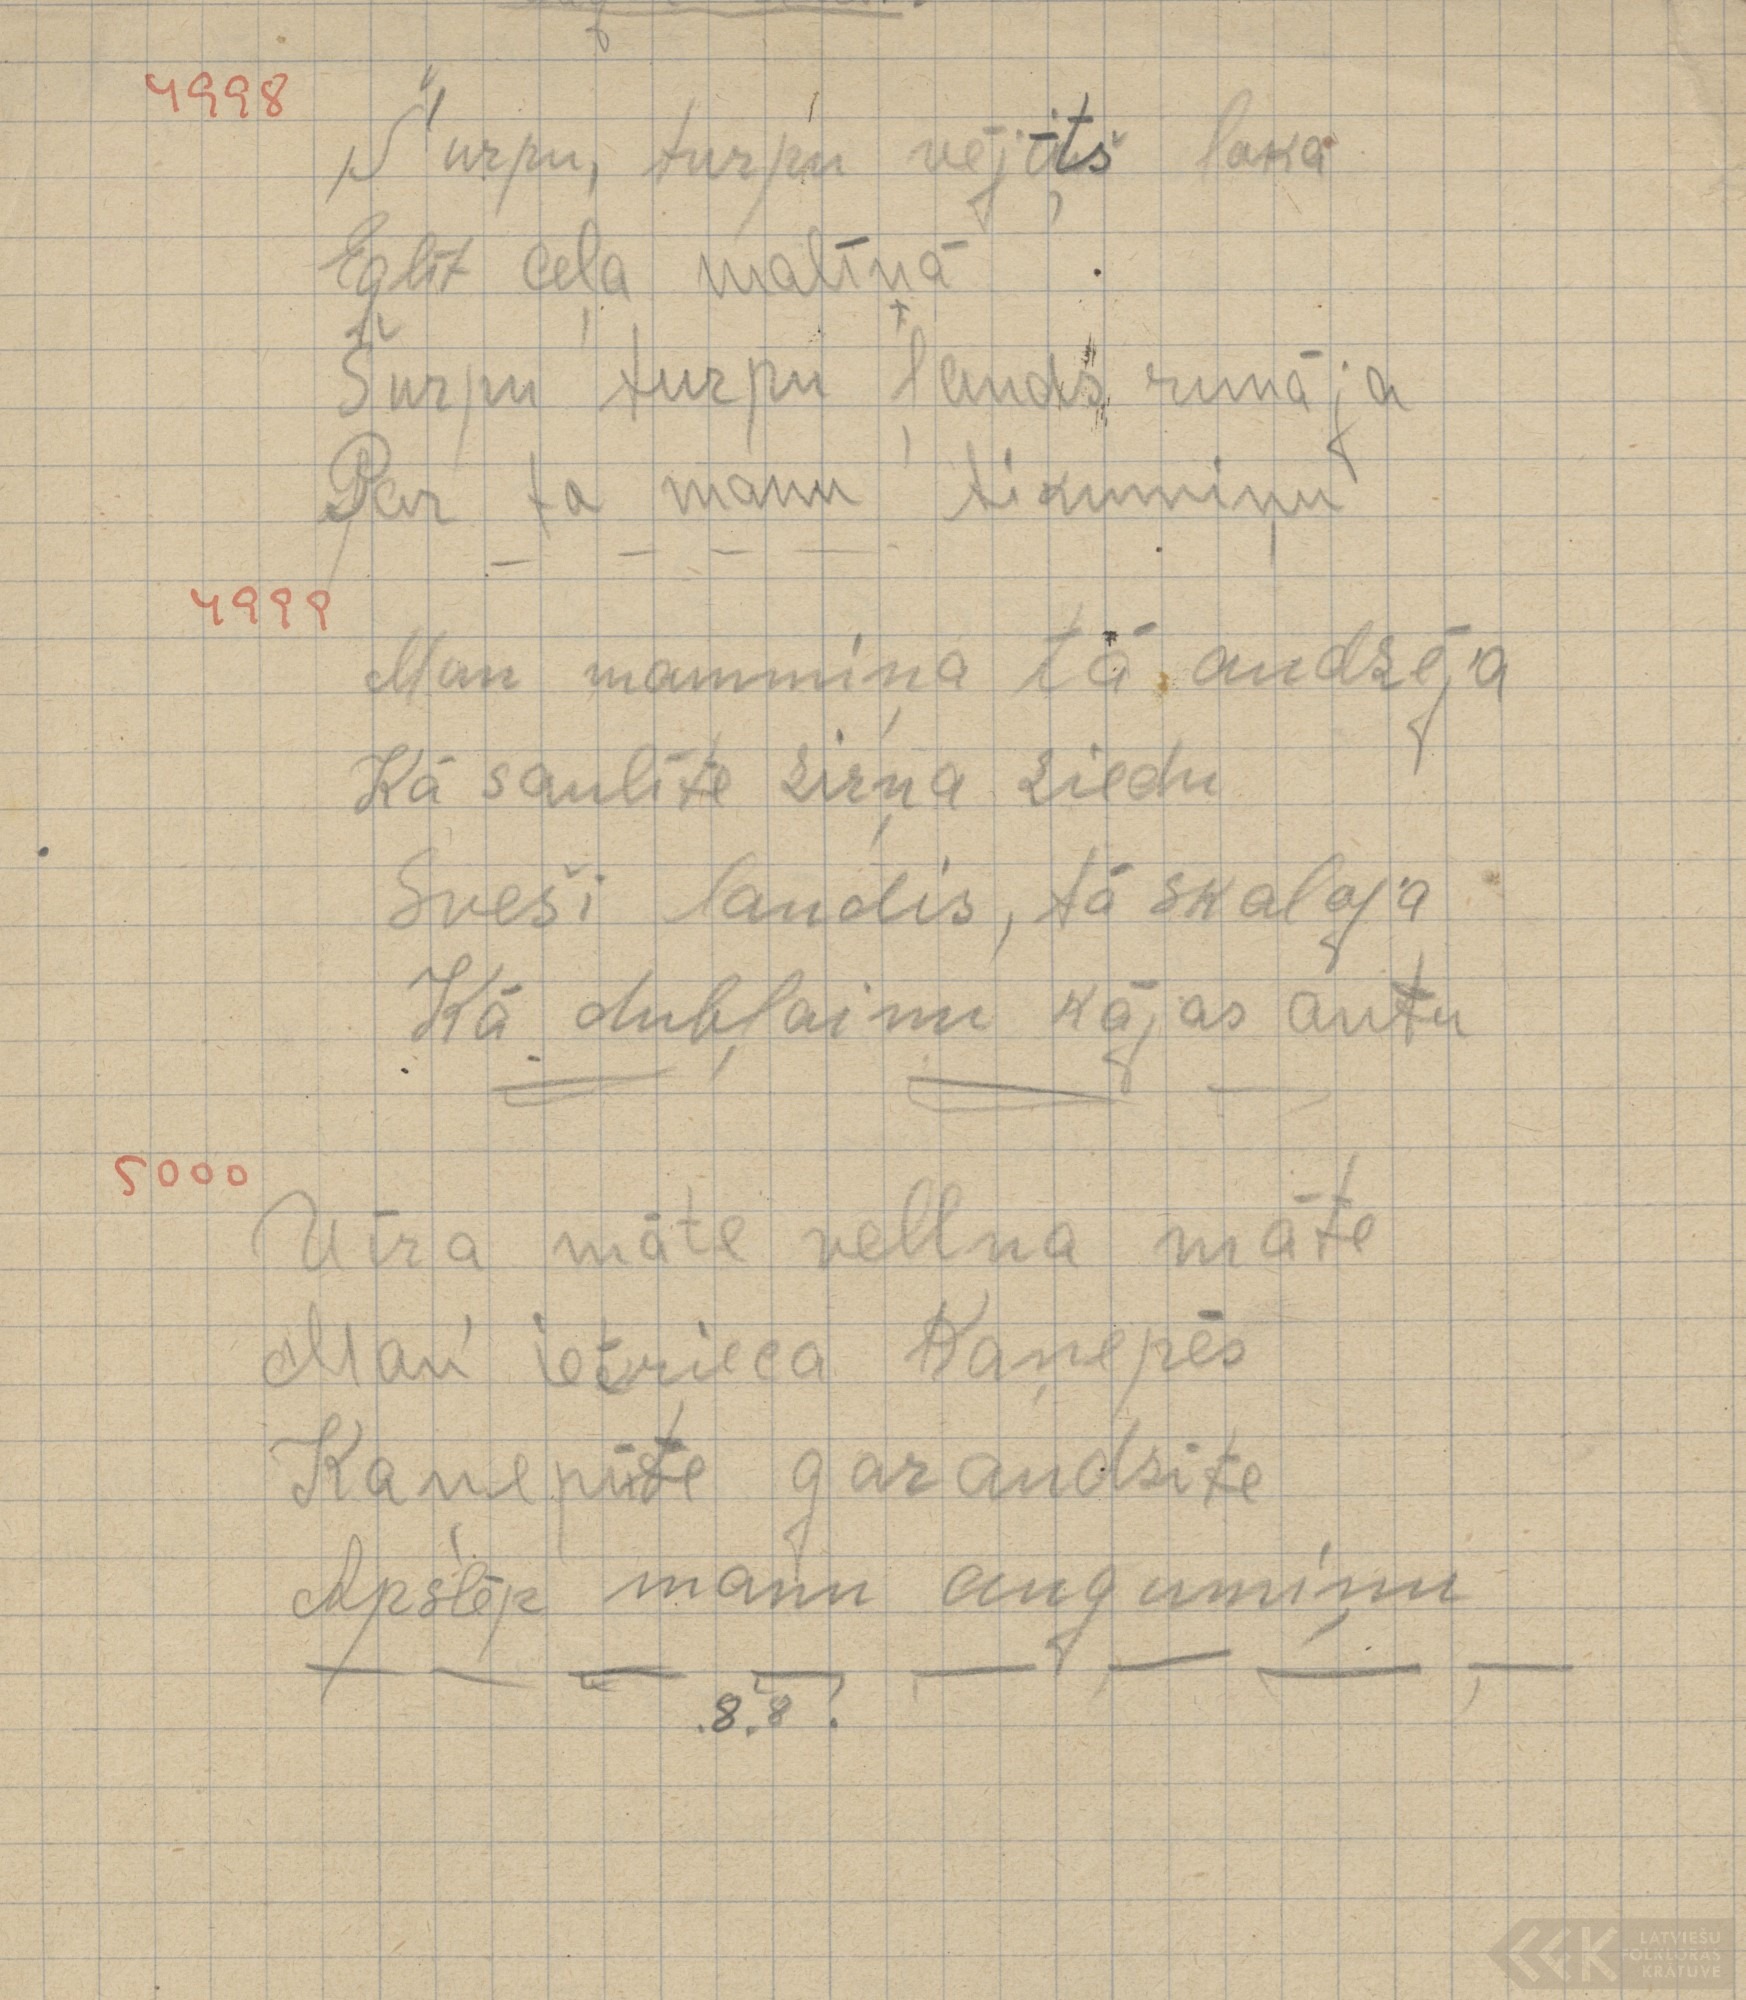 4998
Šurpu, turpu vējiņtš loka
Eglīt ceļa malīņā
Šurpu turpu ļauds runāja
Par to manu tikumiņu
4999
Man mammiņa tā audzēja
Kā saulīte zirņa ziedu
Sveši laudis, tā skaloja
Kā dubļainu kājas autu
5000
Vīra māte vellna māte
Man ietrieca Kaņepēs
Kaņepīte garaudsite
Apslēp manu augumiņu
.8.8!
LATVIEŠU
FOLKLORAS
KRĀTUVE